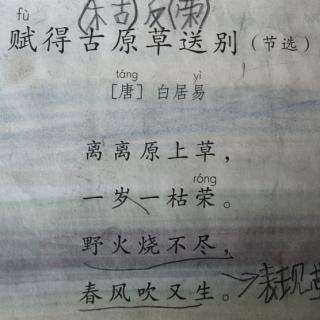 (枯)反(荣)
fù
赋得古原草送别(节选)
táng yì
[唐] 白居易
离离原上草,
róng
一岁一枯荣。
野火烧不尽,
春风吹又生。→表现